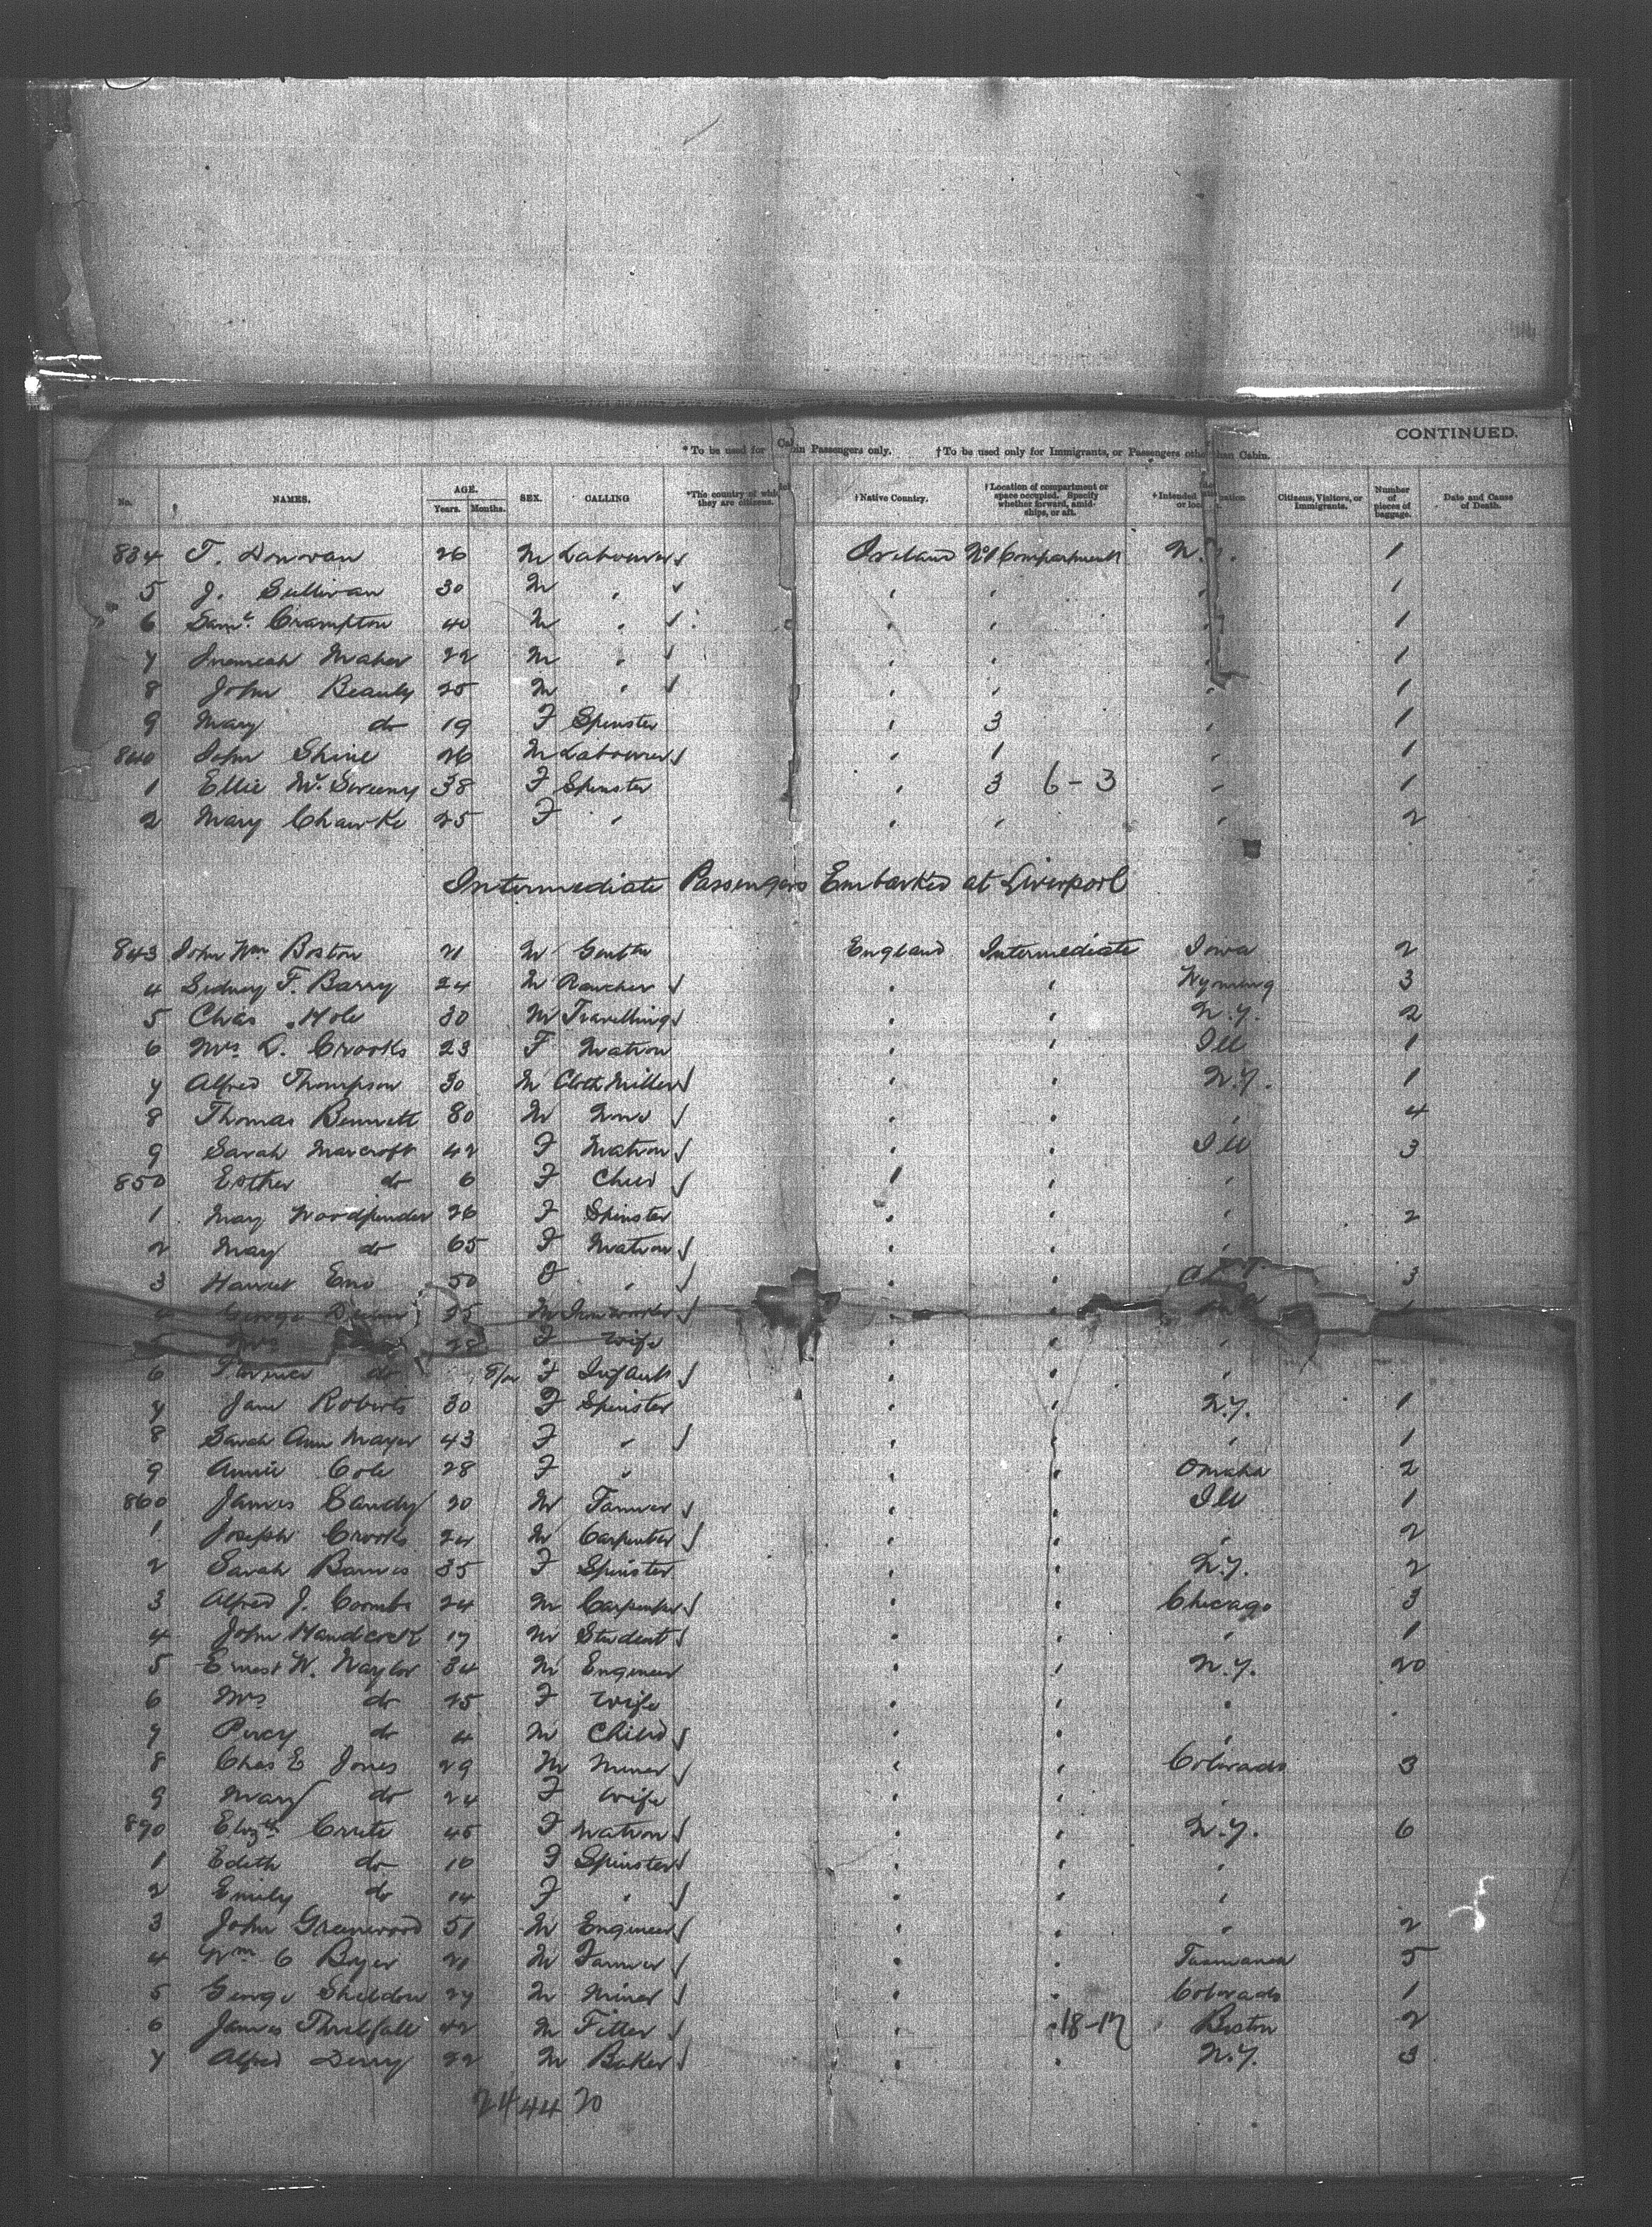 CONTINUED.
*To be used for Cabin Passengers only. †To be used only for Immigrants, or Passengers other than Cabin.
No. NAMES. AGE. Years. Months. SEX. CALLING *The country of which they are citizens. †Native Country. †Location of compartment or space occupied. Specify whether forward, amidships, or aft. †Intended or Citizens, Visitors, or Immigrants. Number of pieces of baggage. Date and Cause of Death.
834 T. Donovan 26 M Labourer Ireland No 1 Compartment N.Y. 1
5 J. Sullivan 30 M " " " " 1
6 Saml. Crampton 40 M " " " " 1
7 Jeremeah Maher 22 M " " " " 1
8 John Beauly 25 M " " " " 1
9 Mary do 19 F Spinster " 3 " 1
840 John Shine 26 M Labourer " 1 " 1
1 Ellie Mc. Sweeny 38 F Spinster " 3 6-3 " 1
2 Mary Chawke 25 F " " " " 2
Intermediate Passengers Embarked at Liverpool
843 John Wm Boston 21 M Gentln England Intermediate Iowa 2
4 Sidney F. Barry 24 M Rancher " " Wyoming 3
5 Chas. Hole 30 M Travelling " " N.Y. 2
6 Mrs D. Crooks 23 F Matron " " Ill 1
7 Alfred Thompson 30 M Cloth Miller " " N.Y. 1
8 Thomas Bennett 80 M None " " " 4
9 Sarah Marcroft 42 F Matron " " Ill 3
850 Esther do 6 F Child " " "
1 May Woodpender 26 F Spinster " " " 2
2 May do 65 F Matron " " "
3 Harriet Eno 50 F " " " 3
4 George 25 M Iron worker " " 1
5 Mrs 28 F Wife " " "
6 Florence do 8/12 F Infant " " "
7 Jane Roberts 30 F Spinster " " N.Y. 1
8 Sarah Ann Mayer 43 F " " " " 1
9 Annie Cole 28 F " " " Omaha 2
860 James Candy 20 M Farmer " " Ill 1
1 Joseph Crooks 24 M Carpenter " " " 2
2 Sarah Barnes 35 F Spinster " " N.Y. 2
3 Alfred J. Coombs 24 M Carpenter " " Chicago 3
4 John Handcock 17 M Student " " " 1
5 Ernest W. Naylor 34 M Engineer " " N.Y. 20
6 Mrs do 25 F Wife " " "
7 Percy do 4 M Child " " "
8 Chas E Jones 29 M Miner " " Colorado 3
9 Mary do 24 F Wife " " "
870 Elizth Crute 45 F Matron " " N.Y. 6
1 Edith do 16 F Spinster " " "
2 Emily do 14 F " " " "
3 John Greenwood 51 M Engineer " " " 2
4 Wm C Boyer 21 M Farmer " " Tasmania 5
5 George Sheldon 27 M Miner " " Colorado 1
6 James Threlfall 42 M Fitter " " 18-17 Boston 2
7 Alfred Derry 22 M Baker " " N.Y. 3
24 44 20